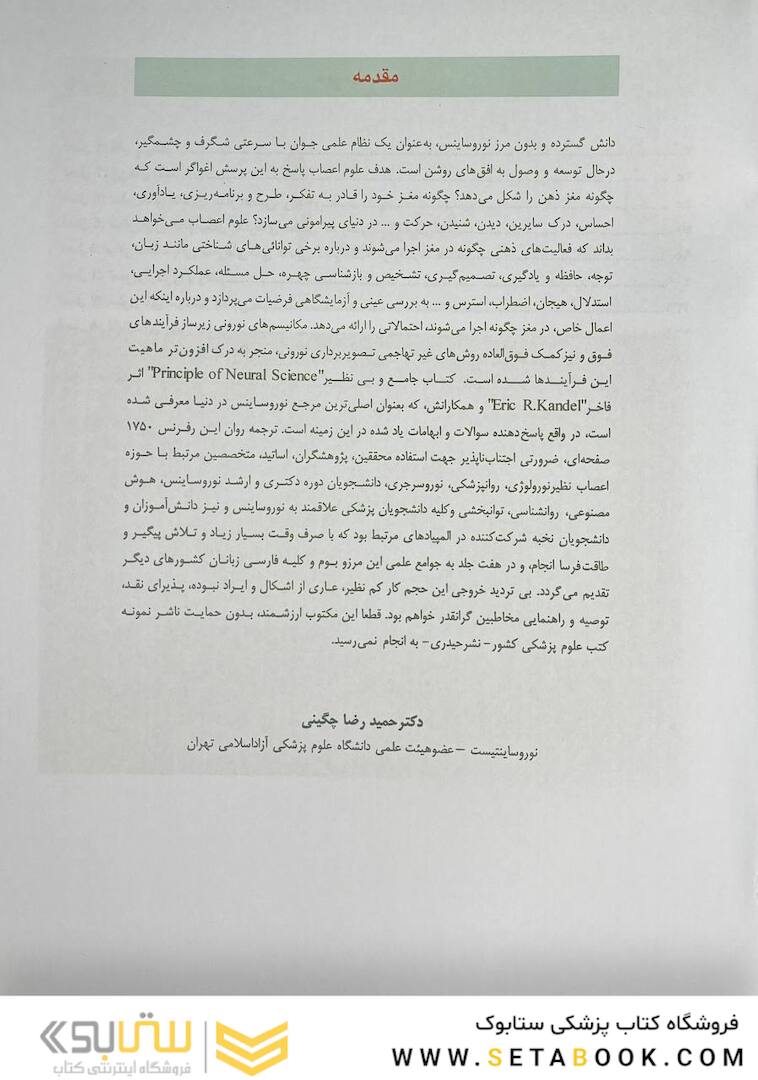 مقدمه
دانش گسترده و بدون مرز نوروساینس، به‌عنوان یک نظام علمی جوان با سرعتی شگرف و چشمگیر،
درحال توسعه و وصول به افق‌های روشن است. هدف علوم اعصاب پاسخ به این پرسش اغواگر است که
چگونه مغز ذهن را شکل می‌دهد؟ چگونه مغز خود را قادر به تفکر، طرح و برنامه‌ریزی، یادآوری،
احساس، درک سایرین، دیدن، شنیدن، حرکت و ... در دنیای پیرامونی می‌سازد؟ علوم اعصاب می‌خواهد
بداند که فعالیت‌های ذهنی چگونه در مغز اجرا می‌شوند و درباره برخی توانائی‌های شناختی مانند زبان،
توجه، حافظه و یادگیری، تصمیم‌گیری، تشخیص و بازشناسی چهره، حل مسئله، عملکرد اجرایی،
استدلال، هیجان، اضطراب، استرس و ... به بررسی عینی و آزمایشگاهی فرضیات می‌پردازد و درباره اینکه این
اعمال خاص، در مغز چگونه اجرا می‌شوند، احتمالاتی را ارائه می‌دهد. مکانیسم‌های نورونی زیرساز فرآیندهای
فوق و نیز کمک فوق‌العاده روش‌های غیر تهاجمی تصویربرداری نورونی، منجر به درک افزون‌تر ماهیت
این فرآیندها شده است. کتاب جامع و بی نظیر"Principle of Neural Science" اثر
فاخر"Eric R.Kandel" و همکارانش، که بعنوان اصلی‌ترین مرجع نوروساینس در دنیا معرفی شده
است، در واقع پاسخ‌دهنده سوالات و ابهامات یاد شده در این زمینه است. ترجمه روان این رفرنس ۱۷۵۰
صفحه‌ای، ضرورتی اجتناب‌ناپذیر جهت استفاده محققین، پژوهشگران، اساتید، متخصصین مرتبط با حوزه
اعصاب نظیرنورولوژی، روانپزشکی، نوروسرجری، دانشجویان دوره دکتری و ارشد نوروساینس، هوش
مصنوعی، روانشناسی، توانبخشی وکلیه دانشجویان پزشکی علاقمند به نوروساینس و نیز دانش‌آموزان و
دانشجویان نخبه شرکت‌کننده در المپیادهای مرتبط بود که با صرف وقت بسیار زیاد و تلاش پیگیر و
طاقت‌فرسا انجام، و در هفت جلد به جوامع علمی این مرزو بوم و کلیه فارسی زبانان کشورهای دیگر
تقدیم می‌گردد. بی تردید خروجی این حجم کار کم نظیر، عاری از اشکال و ایراد نبوده، پذیرای نقد،
توصیه و راهنمایی مخاطبین گرانقدر خواهم بود. قطعا این مکتوب ارزشمند، بدون حمایت ناشر نمونه
کتب علوم پزشکی کشور- نشرحیدری- به انجام نمی‌رسید.
دکترحمید رضا چگینی
نوروساینتیست –عضوهیئت علمی دانشگاه علوم پزشکی آزاداسلامی تهران
فروشگاه کتاب پزشکی ستابوک
WWW.SETABOOK.COM
ستابوک
فروشگاه اینترنتی کتاب